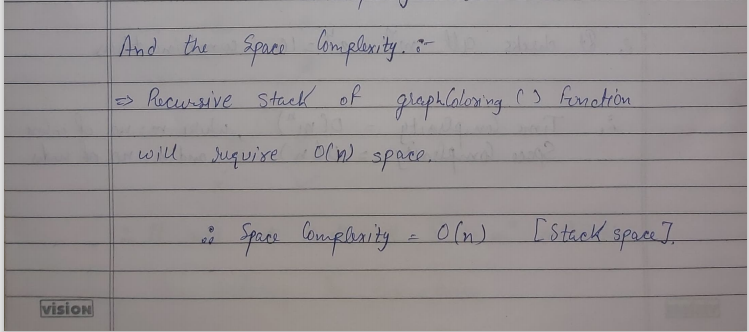 And the Space Complexity. :-
⇒ Recursive Stack of graphColoring () function
will require O(n) space.
∴ Space Complexity = O(n) [Stack space].
vision